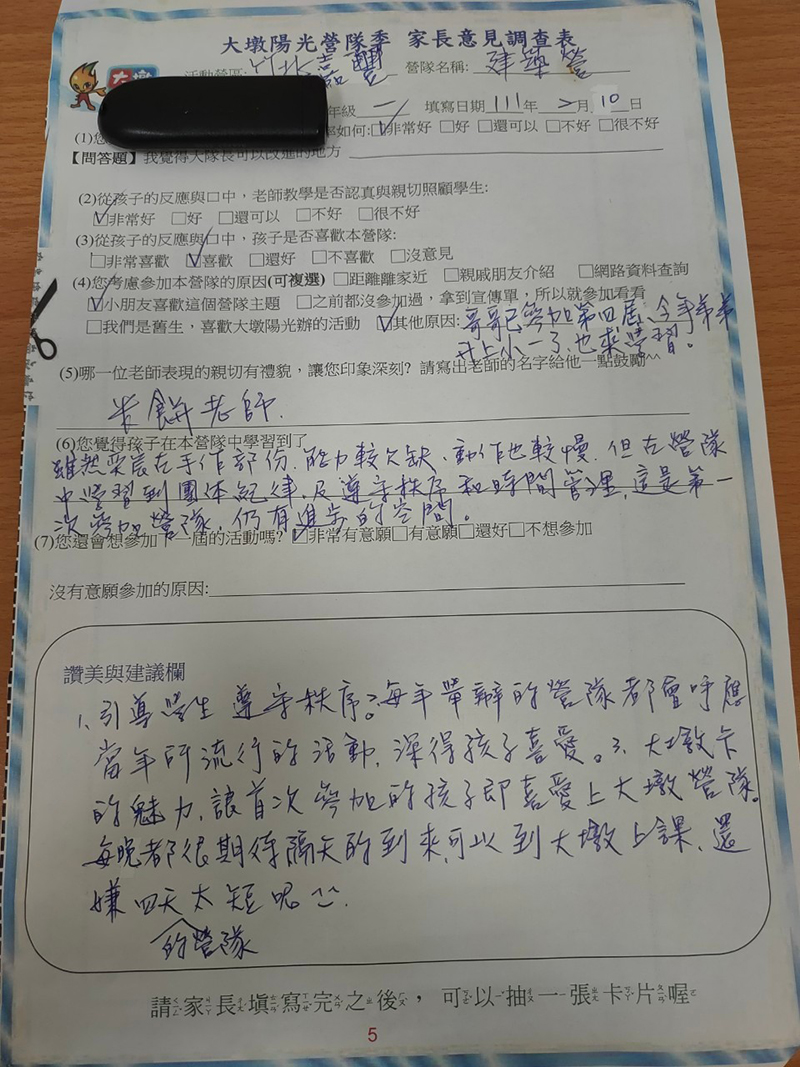 大墩陽光營隊季 家長意見調查表
活動營區: 竹北嘉豐 營隊名稱: 建築營
大墩
年級 一 填寫日期 111年 2月 10日
(1)您 如何:☑非常好 □好 □還可以 □不好 □很不好
【問答題】我覺得大隊長可以改進的地方
(2)從孩子的反應與口中，老師教學是否認真與親切照顧學生:
☑非常好 □好 □還可以 □不好 □很不好
(3)從孩子的反應與口中，孩子是否喜歡本營隊:
□非常喜歡 ☑喜歡 □還好 □不喜歡 □沒意見
(4)您考慮參加本營隊的原因(可複選) □距離離家近 □親戚朋友介紹 □網路資料查詢
☑小朋友喜歡這個營隊主題 □之前都沒參加過，拿到宣傳單，所以就參加看看
□我們是舊生，喜歡大墩陽光辦的活動 ☑其他原因: 哥哥已參加第四屆,今年弟弟
升上小一了,也來學習。
(5)哪一位老師表現的親切有禮貌，讓您印象深刻? 請寫出老師的名字給他一點鼓勵^^
米餅老師.
(6)您覺得孩子在本營隊中學習到了
雖然奕宸在手作部份,能力較欠缺、動作也較慢,但在營隊
中學習到團体紀律,及遵守秩序和時間管理,這是第一
次參加營隊,仍有進步的空間。
(7)您還會想參加下一屆的活動嗎? ☑非常有意願□有意願□還好□不想參加
沒有意願參加的原因:
讚美與建議欄
1、引導學生遵守秩序。2、每年舉辦的營隊都會呼應
當年所流行的活動,深得孩子喜愛。3、大墩卡
的魅力,讓首次參加的孩子即喜愛上大墩營隊。
每晚都很期待隔天的到來,可以到大墩上課,還
嫌四天太短呢^^.
的營隊
請家長填寫完之後，可以抽一張卡片喔
5